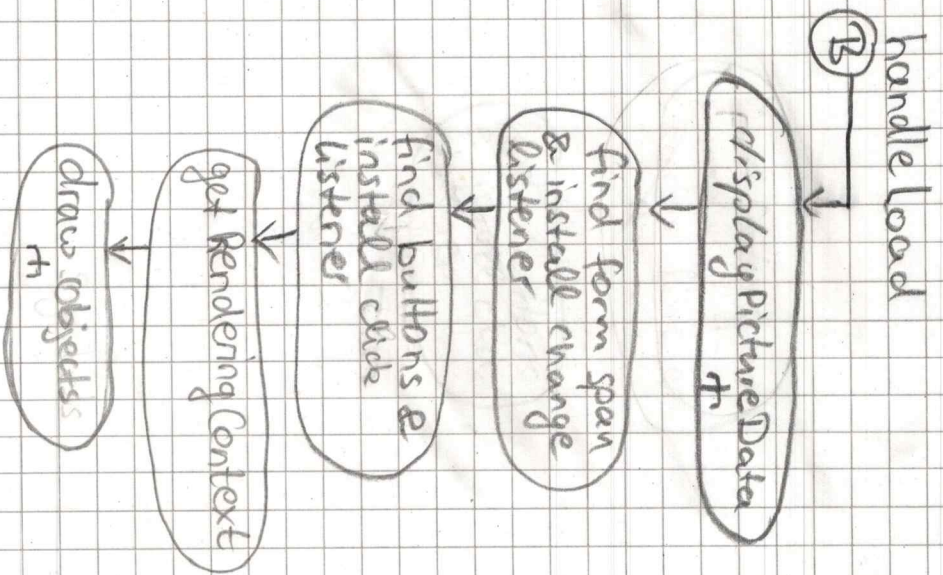 handleload
B
displayPictureData
find form span
& install change
listener
find buttons &
install click
listener
get RenderingContext
draw objects